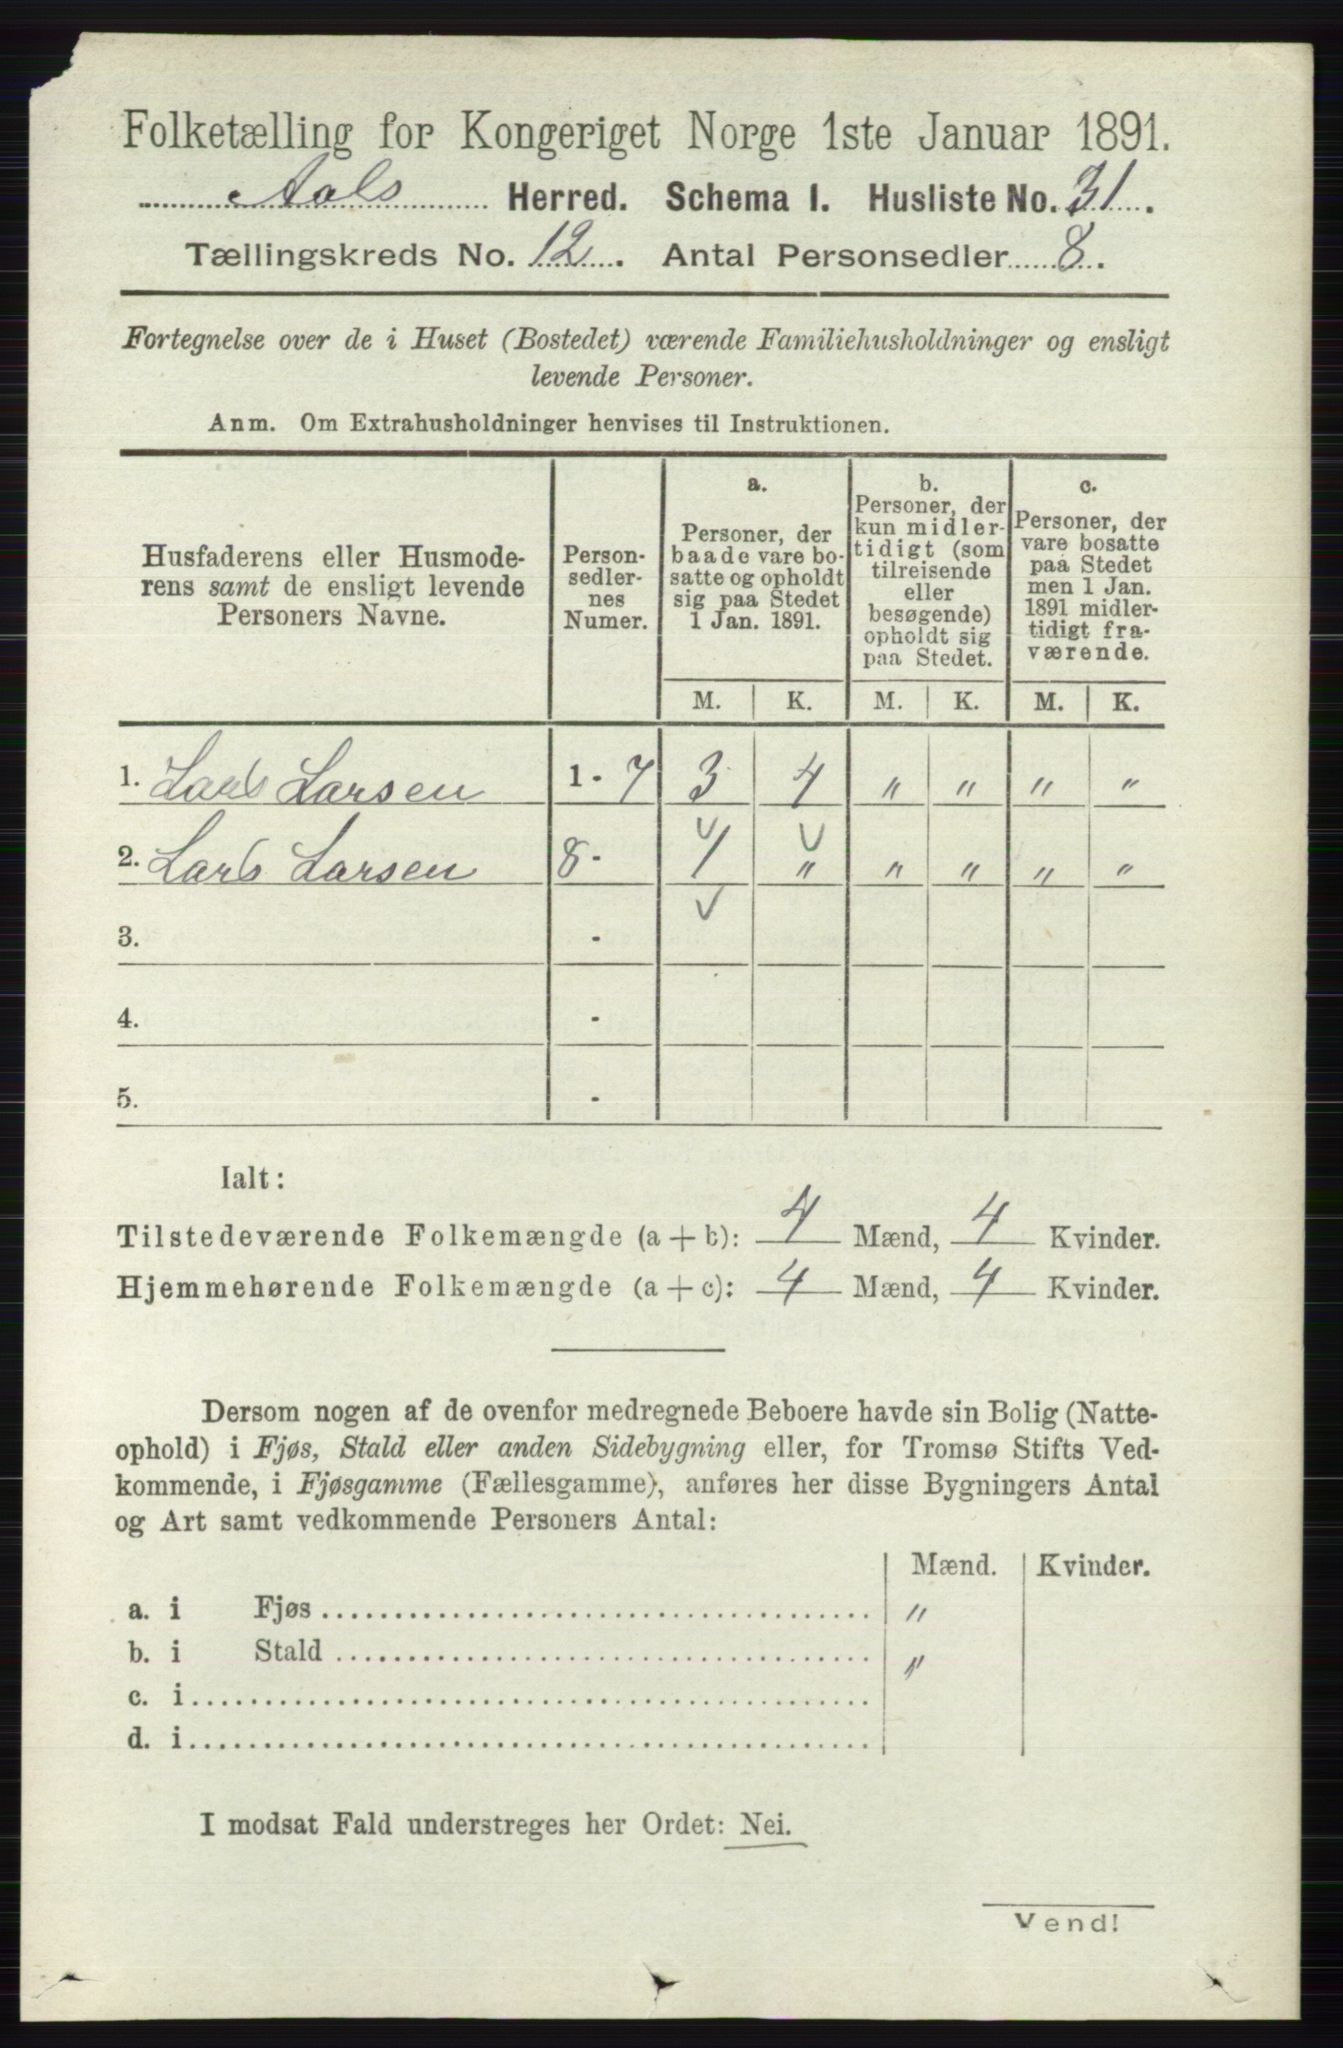 Folketælling for Kongeriget Norge 1ste Januar 1891.
Aals Herred. Schema I. Husliste No. 31.
Tællingskreds No. 12. Antal Personsedler 8.
Fortegnelse over de i Huset (Bostedet) værende Familiehusholdninger og ensligt
levende Personer.
Anm. Om Extrahusholdninger henvises til Instruktionen.
Husfaderens eller Husmode-
rens samt de ensligt levende
Personers Navne.
Person-
sedler-
nes
Numer.
a.
Personer, der
baade vare bo-
satte og opholdt
sig paa Stedet
1 Jan. 1891.
b.
Personer, der
kun midler-
tidigt (som
tilreisende
eller
besøgende)
opholdt sig
paa Stedet.
c.
Personer, der
vare bosatte
paa Stedet
men 1 Jan.
1891 midler-
tidigt fra-
værende.
M. K. M. K. M. K.
1. Lars Larsen 1 - 7 3 4 " " " "
2. Lars Larsen 8 - 1 " " " " "
3. -
4. -
5. -
Ialt:
Tilstedeværende Folkemængde (a + b): 4 Mænd, 4 Kvinder.
Hjemmehørende Folkemængde (a + c): 4 Mænd, 4 Kvinder.
Dersom nogen af de ovenfor medregnede Beboere havde sin Bolig (Natte-
ophold) i Fjøs, Stald eller anden Sidebygning eller, for Tromsø Stifts Ved-
kommende, i Fjøsgamme (Fællesgamme), anføres her disse Bygningers Antal
og Art samt vedkommende Personers Antal:
Mænd. Kvinder.
a. i Fjøs "
b. i Stald "
c. i
d. i
I modsat Fald understreges her Ordet: Nei.
Vend!